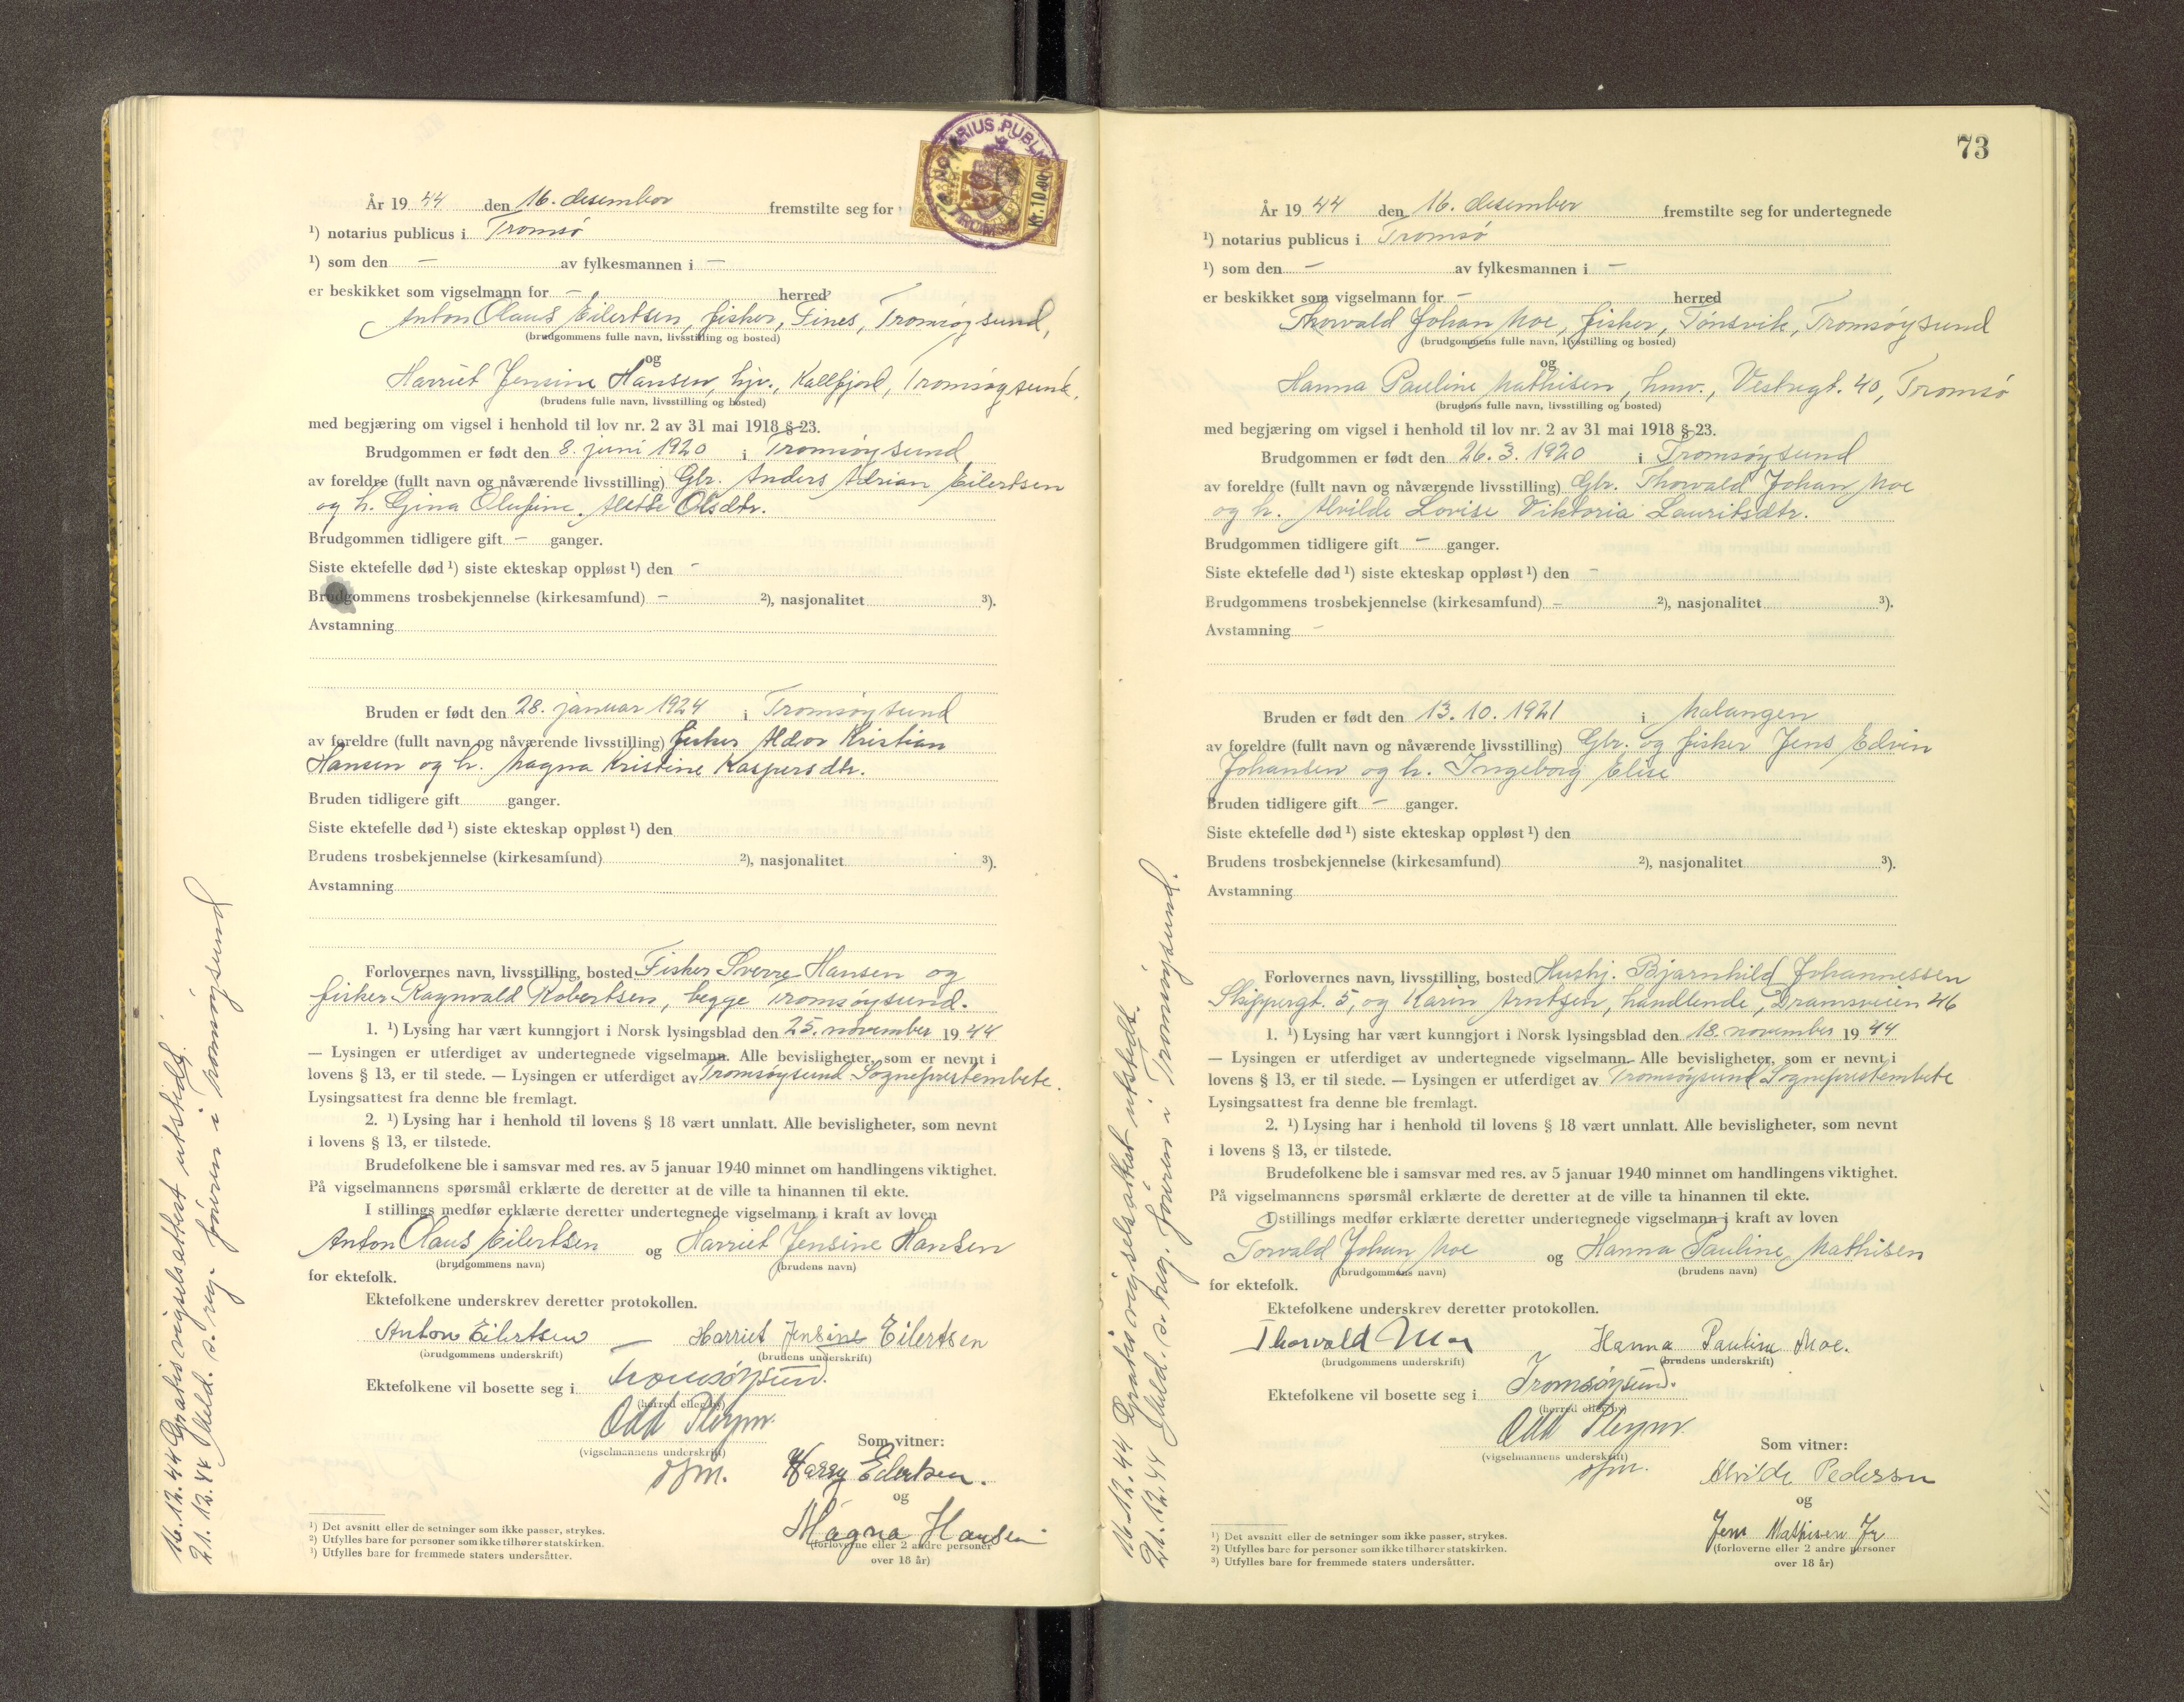 NOTARIUS PUBLIC
TROMSØ
Kr. 10.00
År 19 44 den 16. desember fremstilte seg for
¹) notarius publicus i Tromsø
¹) som den — av fylkesmannen i —
er beskikket som vigselmann for — herred
Anton Olaus Eilertsen, fisker, Fines, Tromsøysund,
(brudgommens fulle navn, livsstilling og bosted)
og
Harriet Jensine Hansen, hjv., Kallfjord, Tromsøysund.
(brudens fulle navn, livsstilling og bosted)
med begjæring om vigsel i henhold til lov nr. 2 av 31 mai 1918 § 23.
Brudgommen er født den 8. juni 1920 i Tromsøysund
av foreldre (fullt navn og nåværende livsstilling) Gbr. Anders Adrian Eilertsen
og h. Gina Olufine Alette Olsdtr.
Brudgommen tidligere gift — ganger.
Siste ektefelle død ¹) siste ekteskap oppløst ¹) den -
Brudgommens trosbekjennelse (kirkesamfund) — ²), nasjonalitet ³).
Avstamning
Bruden er født den 28. januar 1924 i Tromsøysund
av foreldre (fullt navn og nåværende livsstilling) fisker Aldor Kristian
Hansen og h. Magna Kristine Kaspersdtr.
Bruden tidligere gift ganger.
Siste ektefelle død ¹) siste ekteskap oppløst ¹) den
Brudens trosbekjennelse (kirkesamfund) ²), nasjonalitet ³).
Avstamning
Forlovernes navn, livsstilling, bosted Fisker Sverre Hansen og
fisker Ragnvald Robertsen, begge Tromsøysund.
1. ¹) Lysing har vært kunngjort i Norsk lysingsblad den 25. november 19 44
— Lysingen er utferdiget av undertegnede vigselmann. Alle bevisligheter, som er nevnt i
lovens § 13, er til stede. — Lysingen er utferdiget av Tromsøysund Sogneprestembete.
Lysingsattest fra denne ble fremlagt.
2. ¹) Lysing har i henhold til lovens § 18 vært unnlatt. Alle bevisligheter, som nevnt
i lovens § 13, er tilstede.
Brudefolkene ble i samsvar med res. av 5 januar 1940 minnet om handlingens viktighet.
På vigselmannens spørsmål erklærte de deretter at de ville ta hinannen til ekte.
I stillings medfør erklærte deretter undertegnede vigselmann i kraft av loven
Anton Olaus Eilertsen og Harriet Jensine Hansen
(brudgommens navn) (brudens navn)
for ektefolk.
Ektefolkene underskrev deretter protokollen.
Anton Eilertsen — Harriet Jensine Eilertsen
(brudgommens underskrift) (brudens underskrift)
Ektefolkene vil bosette seg i Tromsøysund.
(herred eller by)
Odd Pleym
(vigselmannens underskrift)
dfm.
Som vitner:
Harry Eilertsen.
og
Magna Hansen
(forloverne eller 2 andre personer
over 18 år)
¹) Det avsnitt eller de setninger som ikke passer, strykes.
²) Utfylles bare for personer som ikke tilhører statskirken.
³) Utfylles bare for fremmede staters undersåtter.
16.12.44 Gratis vigselsattest utstedt.
21.12.44 Meld. s. reg. føreren i Tromsøysund
73
År 19 44 den 16. desember fremstilte seg for undertegnede
¹) notarius publicus i Tromsø
¹) som den — av fylkesmannen i —
er beskikket som vigselmann for — herred
Thorvald Johan Moe, fisker, Tønsvik, Tromsøysund
(brudgommens fulle navn, livsstilling og bosted)
og
Hanna Pauline Mathisen, hmv., Vestregt. 40, Tromsø
(brudens fulle navn, livsstilling og bosted)
med begjæring om vigsel i henhold til lov nr. 2 av 31 mai 1918 § 23.
Brudgommen er født den 26. 3. 1920 i Tromsøysund
av foreldre (fullt navn og nåværende livsstilling) Gbr. Thorvald Johan Moe
og h. Alvilde Lovise Viktoria Lauritsdtr.
Brudgommen tidligere gift — ganger.
Siste ektefelle død ¹) siste ekteskap oppløst ¹) den —
Brudgommens trosbekjennelse (kirkesamfund) — ²), nasjonalitet ³).
Avstamning -
Bruden er født den 13. 10. 1921 i Malangen
av foreldre (fullt navn og nåværende livsstilling) Gbr. og fisker Jens Edvin
Johansen og h. Ingeborg Elise
Bruden tidligere gift — ganger.
Siste ektefelle død ¹) siste ekteskap oppløst ¹) den
Brudens trosbekjennelse (kirkesamfund) ²), nasjonalitet ³).
Avstamning
Forlovernes navn, livsstilling, bosted Hushj. Bjarnhild Johannessen
Skippergt. 5, og Karin Arntsen, handlende, Dramsveien 46
1. ¹) Lysing har vært kunngjort i Norsk lysingsblad den 18. november 19 44
— Lysingen er utferdiget av undertegnede vigselmann. Alle bevisligheter, som er nevnt i
lovens § 13, er til stede. — Lysingen er utferdiget av Tromsøysund Sogneprestembete
Lysingsattest fra denne ble fremlagt.
2. ¹) Lysing har i henhold til lovens § 18 vært unnlatt. Alle bevisligheter, som nevnt
i lovens § 13, er tilstede.
Brudefolkene ble i samsvar med res. av 5 januar 1940 minnet om handlingens viktighet.
På vigselmannens spørsmål erklærte de deretter at de ville ta hinannen til ekte.
I stillings medfør erklærte deretter undertegnede vigselmann i kraft av loven
Torvald Johan Moe og Hanna Pauline Mathisen
(brudgommens navn) (brudens navn)
for ektefolk.
Ektefolkene underskrev deretter protokollen.
Thorvald Moe Hanna Pauline Moe.
(brudgommens underskrift) (brudens underskrift)
Ektefolkene vil bosette seg i Tromsøysund.
(herred eller by)
Odd Pleym
(vigselmannens underskrift)
dfm.
Som vitner:
Alvilde Pedersen
og
Jens Mathisen Jr
(forloverne eller 2 andre personer
over 18 år)
¹) Det avsnitt eller de setninger som ikke passer, strykes.
²) Utfylles bare for personer som ikke tilhører statskirken.
³) Utfylles bare for fremmede staters undersåtter.
16.12.44 Gratis vigselsattest utstedt.
21.12.44 Meld. s. reg. føreren i Tromsøysund.